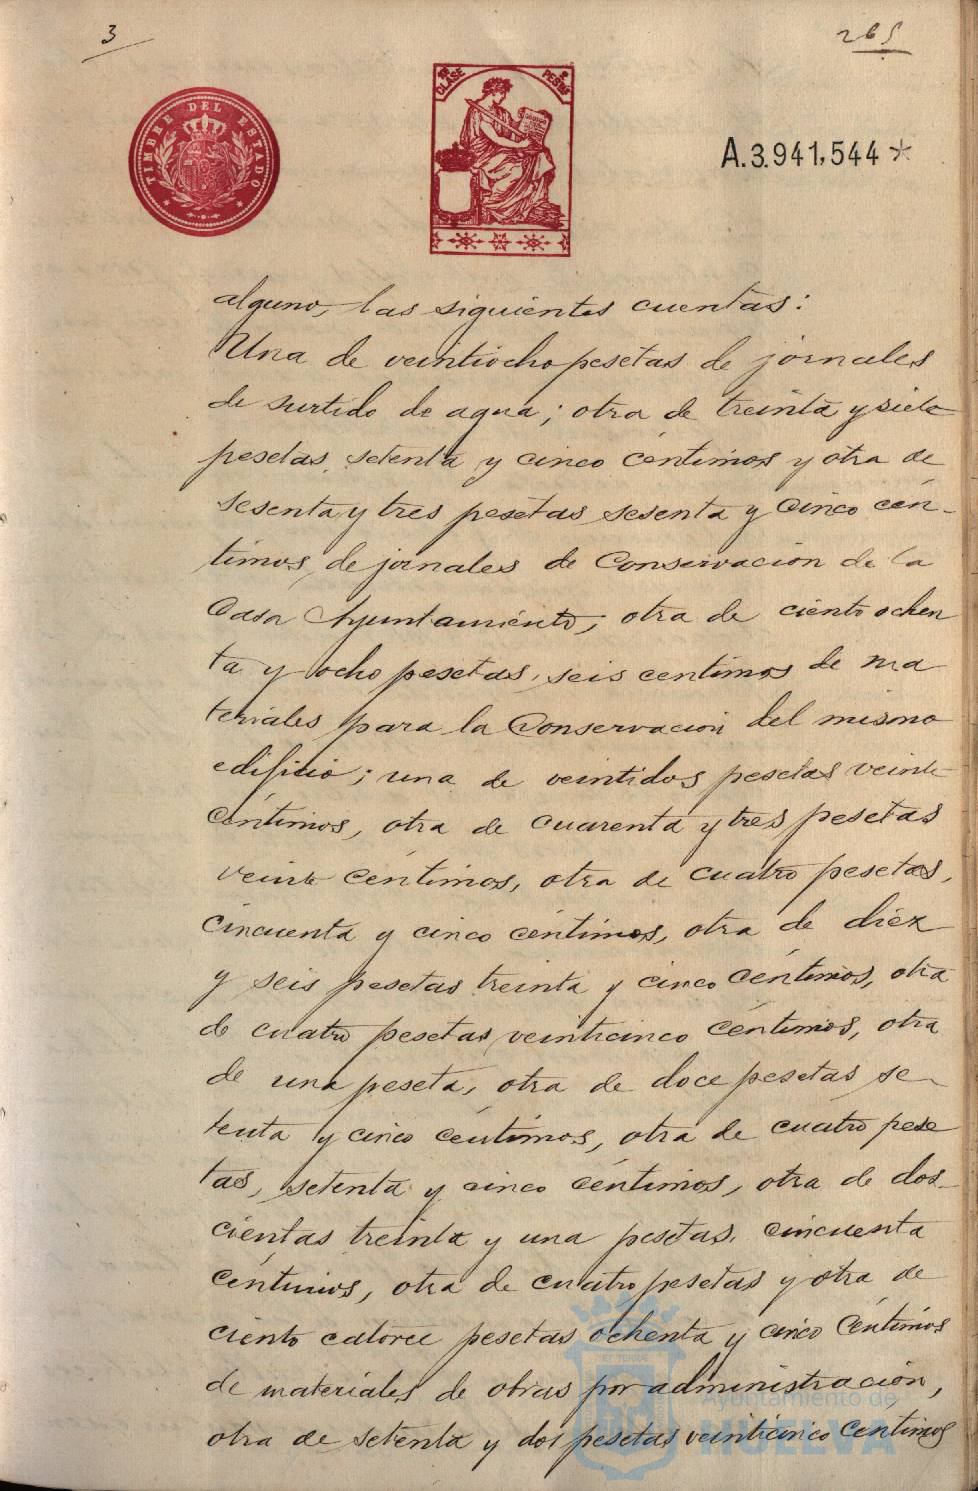 3
265
TIMBRE DEL ESTADO
CLASE
PESTAS
A.3.941,544 *
alguno, las siguientes cuentas:
Una de veintiocho pesetas de jornales
de surtido de agua; otra de treinta y siete
pesetas, setenta y cinco centimos y otra de
sesenta y tres pesetas sesenta y cinco cén-
timos, de jornales de Conservacion de la
Casa Ayuntamiento; otra de ciento ochen
ta y ocho pesetas, seis centimos de ma
teriales para la Conservacion del mismo
edificio; una de veintidos pesetas veinte
céntimos, otra de cuarenta y tres pesetas
veinte céntimos, otra de cuatro pesetas,
cincuenta y cinco céntimos, otra de diez
y seis pesetas treinta y cinco céntimos, otra
de cuatro pesetas veinticinco céntimos, otra
de una peseta, otra de doce pesetas se-
tenta y cinco céntimos, otra de cuatro pese
tas, setenta y cinco céntimos, otra de dos-
cientas treinta y una pesetas, cincuenta
céntimos, otra de cuatro pesetas y otra de
ciento catorce pesetas ochenta y cinco céntimos
de materiales de obras por administración,
otra de setenta y dos pesetas veinticinco céntimos
Ayuntamiento de
HUELVA